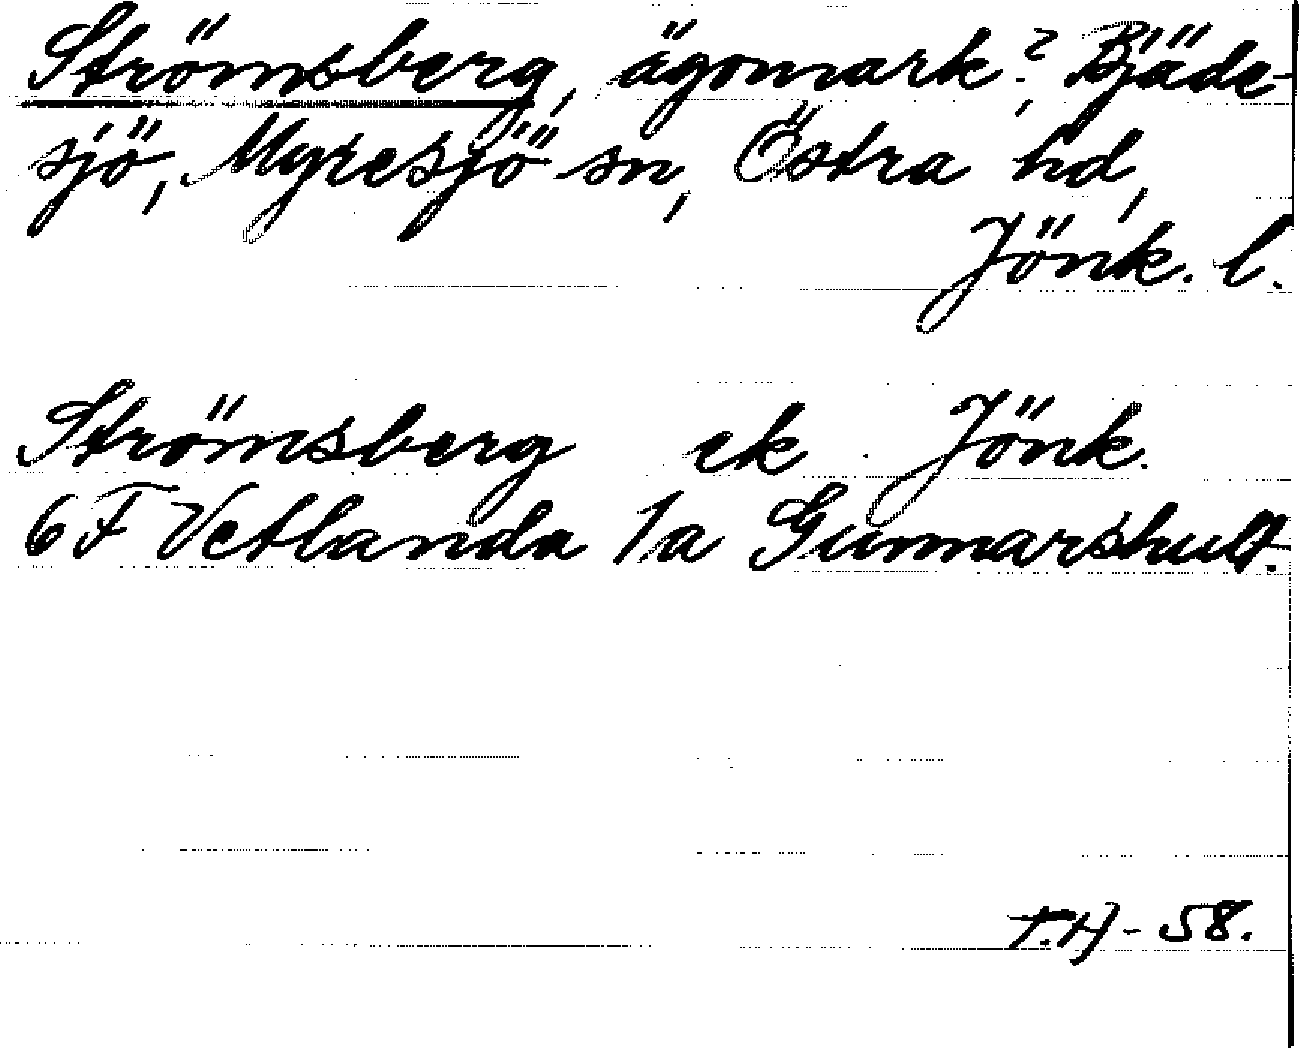 Strömsberg, ägomark?, Bjäde-
sjö, Myresjö sn, Östra hd,
Jönk. l.
Strömsberg ek Jönk.
6 F Vetlanda 1a Gunnarshult.
T.H - 58.